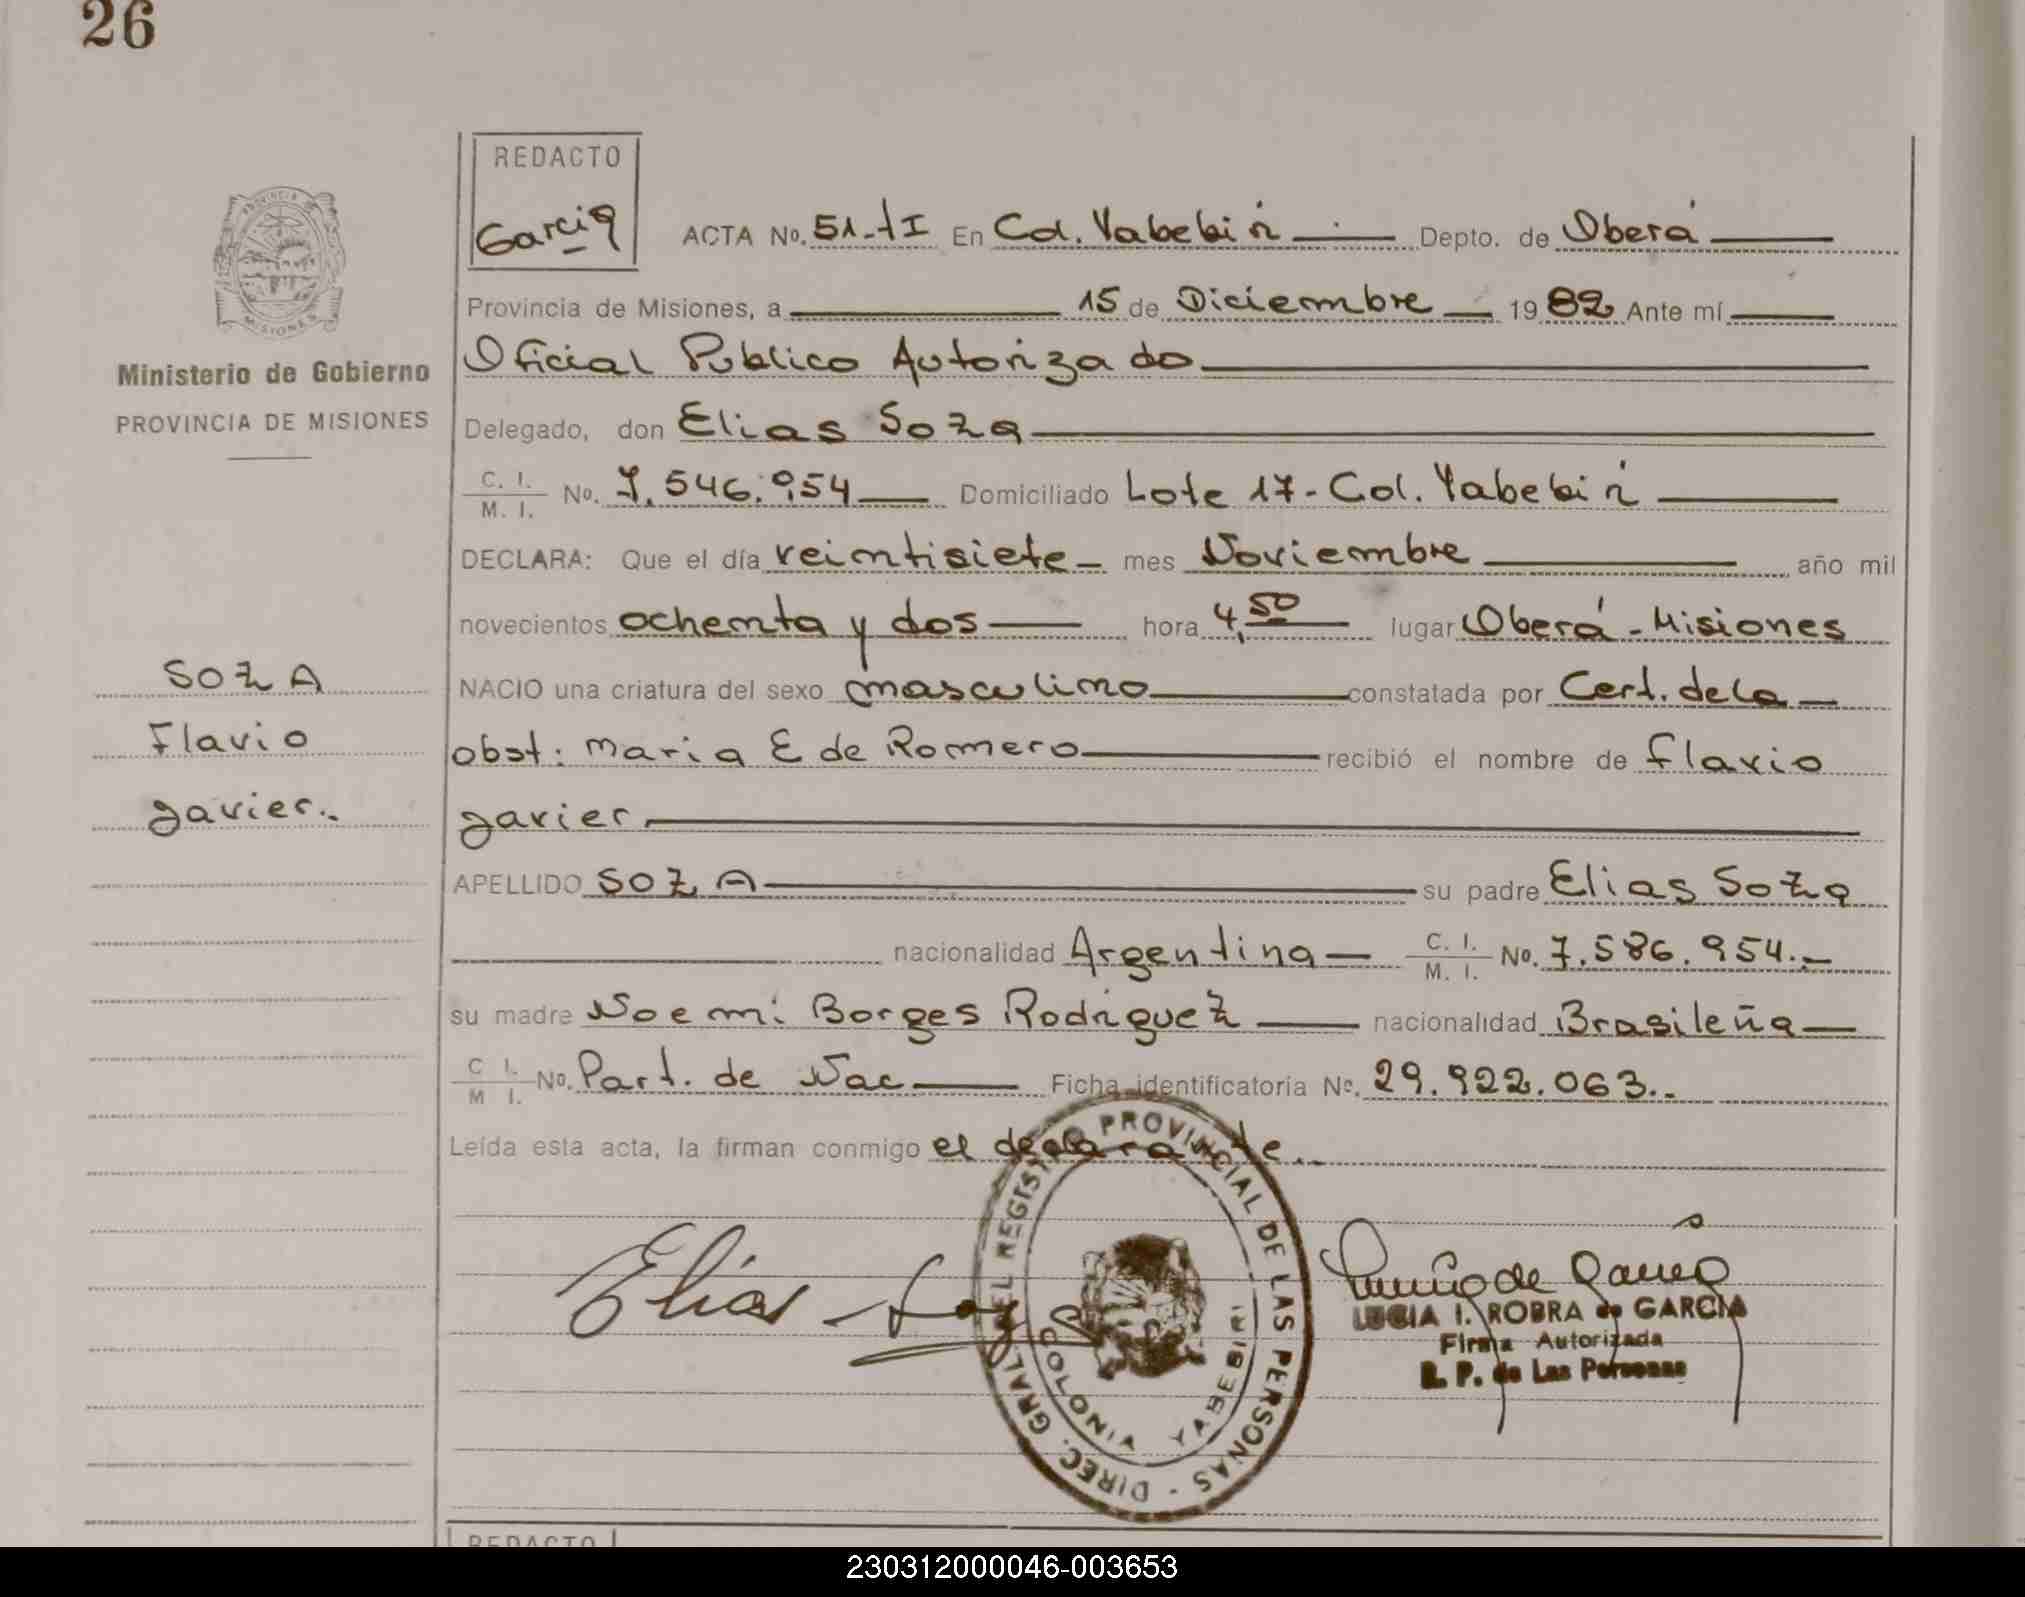 26
REDACTO
Garcia
ACTA No. 51-tI En Col. Yabebirí Depto. de Oberá
Provincia de Misiones, a 15 de Diciembre 1982 Ante mí
Oficial Publico Autorizado
Delegado, don Elias Soza
C. I. M. I. No. 7.546.954 Domiciliado Lote 17- Col. Yabebirí
DECLARA: Que el día veintisiete mes Noviembre año mil
novecientos ochenta y dos hora 4,50 lugar Oberá - Misiones
NACIO una criatura del sexo masculino constatada por Cert. de la
obst: Maria E de Romero recibió el nombre de Flavio
Javier
APELLIDO SOZA su padre Elias Soza
nacionalidad Argentina C. I. M. I. No. 7.586.954.-
su madre Noemi Borges Rodriguez nacionalidad Brasileña
C I. M I. No. Part. de Nac Ficha identificatoria No. 29.922.063..
Leída esta acta, la firman conmigo el declarante..
PROVINCIA DE MISIONES
Ministerio de Gobierno
PROVINCIA DE MISIONES
SOZA
Flavio
Javier..
Elias Soza
DIREC. GRAL. DEL REGISTRO PROVINCIAL DE LAS PERSONAS -
COLONIA YABEBIRI
LUCIA I. ROBRA de GARCIA
Firma Autorizada
R. P. de Las Personas
REDACTO
230312000046-003653